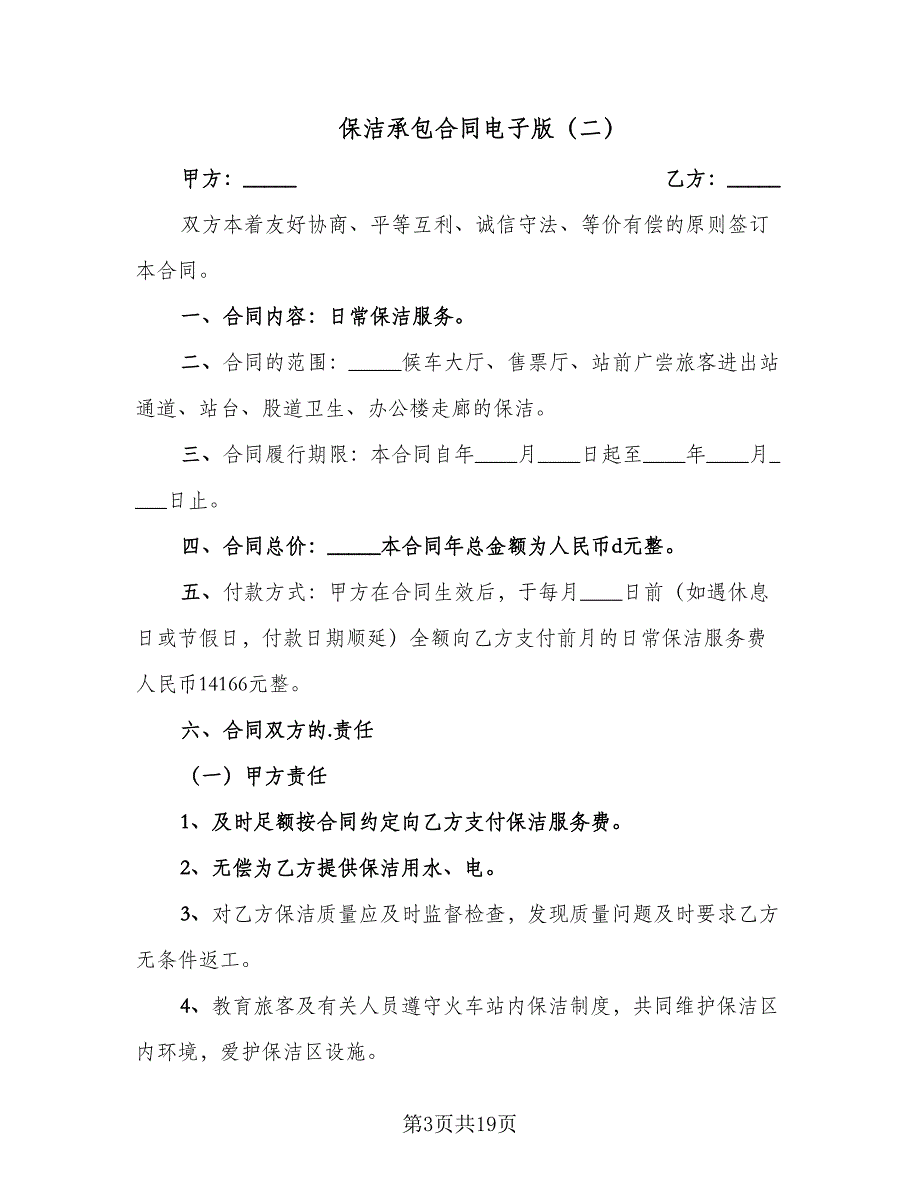 保洁承包合同电子版（二）
甲方：_____ 乙方：_____
双方本着友好协商、平等互利、诚信守法、等价有偿的原则签订
本合同。
一、合同内容：日常保洁服务。
二、合同的范围：_____候车大厅、售票厅、站前广尝旅客进出站
通道、站台、股道卫生、办公楼走廊的保洁。
三、合同履行期限：本合同自年____月____日起至____年____月_
___日止。
四、合同总价：_____本合同年总金额为人民币d元整。
五、付款方式：甲方在合同生效后，于每月____日前（如遇休息
日或节假日，付款日期顺延）全额向乙方支付前月的日常保洁服务费
人民币14166元整。
六、合同双方的.责任
（一）甲方责任
1、及时足额按合同约定向乙方支付保洁服务费。
2、无偿为乙方提供保洁用水、电。
3、对乙方保洁质量应及时监督检查，发现质量问题及时要求乙方
无条件返工。
4、教育旅客及有关人员遵守火车站内保洁制度，共同维护保洁区
内环境，爱护保洁区设施。
第3页共19页